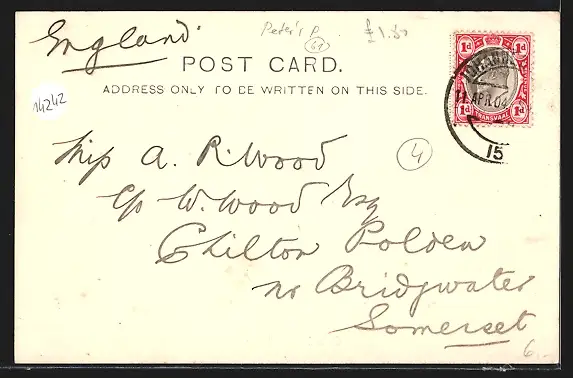 England
Peter's P. £1.80
61
POST CARD.
ADDRESS ONLY TO BE WRITTEN ON THIS SIDE.
14242
1d 1d
11 APR 04
1d 1d
TRANSVAAL
15
Miss A. R. Wood
4
c/o W. Wood Esq
Chilton Polden
nr Bridgwater
Somerset
6.-